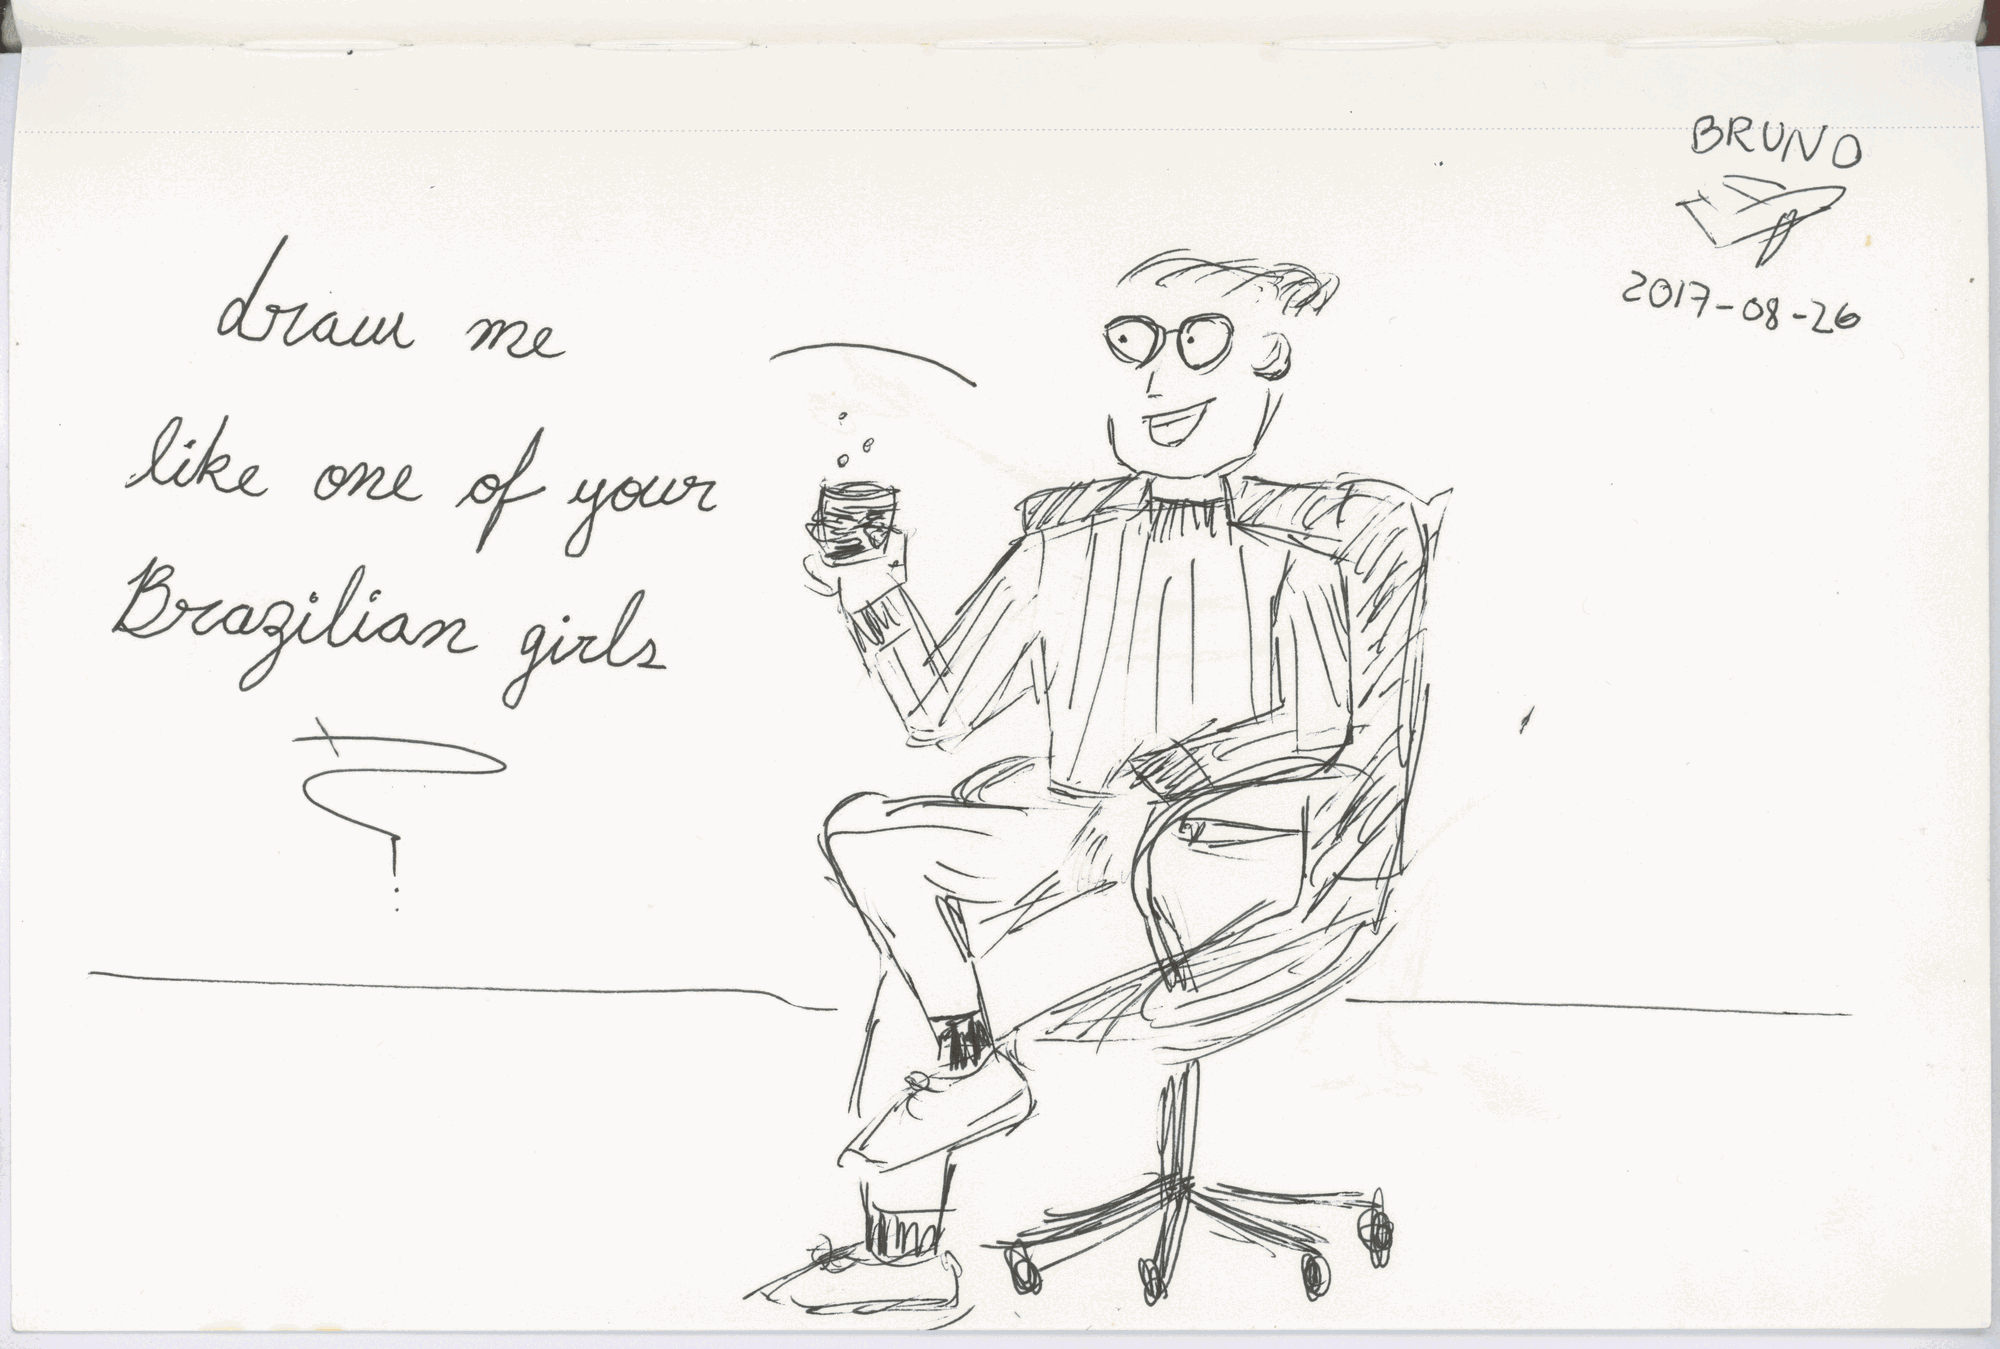 draw me
like one of your
Brazilian girls
BRUNO
2017-08-26